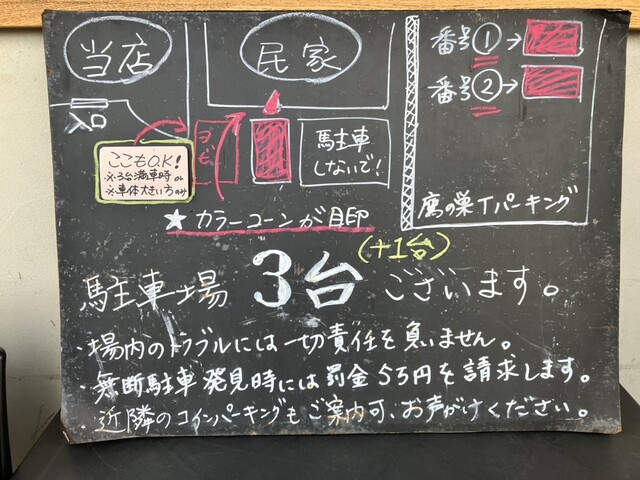 当店
入口
ここもO.K!
※3台満車時or
※車体大きい方のみ
ヨビ
民家
駐車
しないで!
番号①→
番号②→
鷹の巣Tパーキング
★カラーコーンが目印
駐車場 3台(+1台)ございます。
・場内のトラブルには一切責任を負いません。
・無断駐車発見時には罰金5万円を請求します。
・近隣のコインパーキングもご案内可、お声がけください。